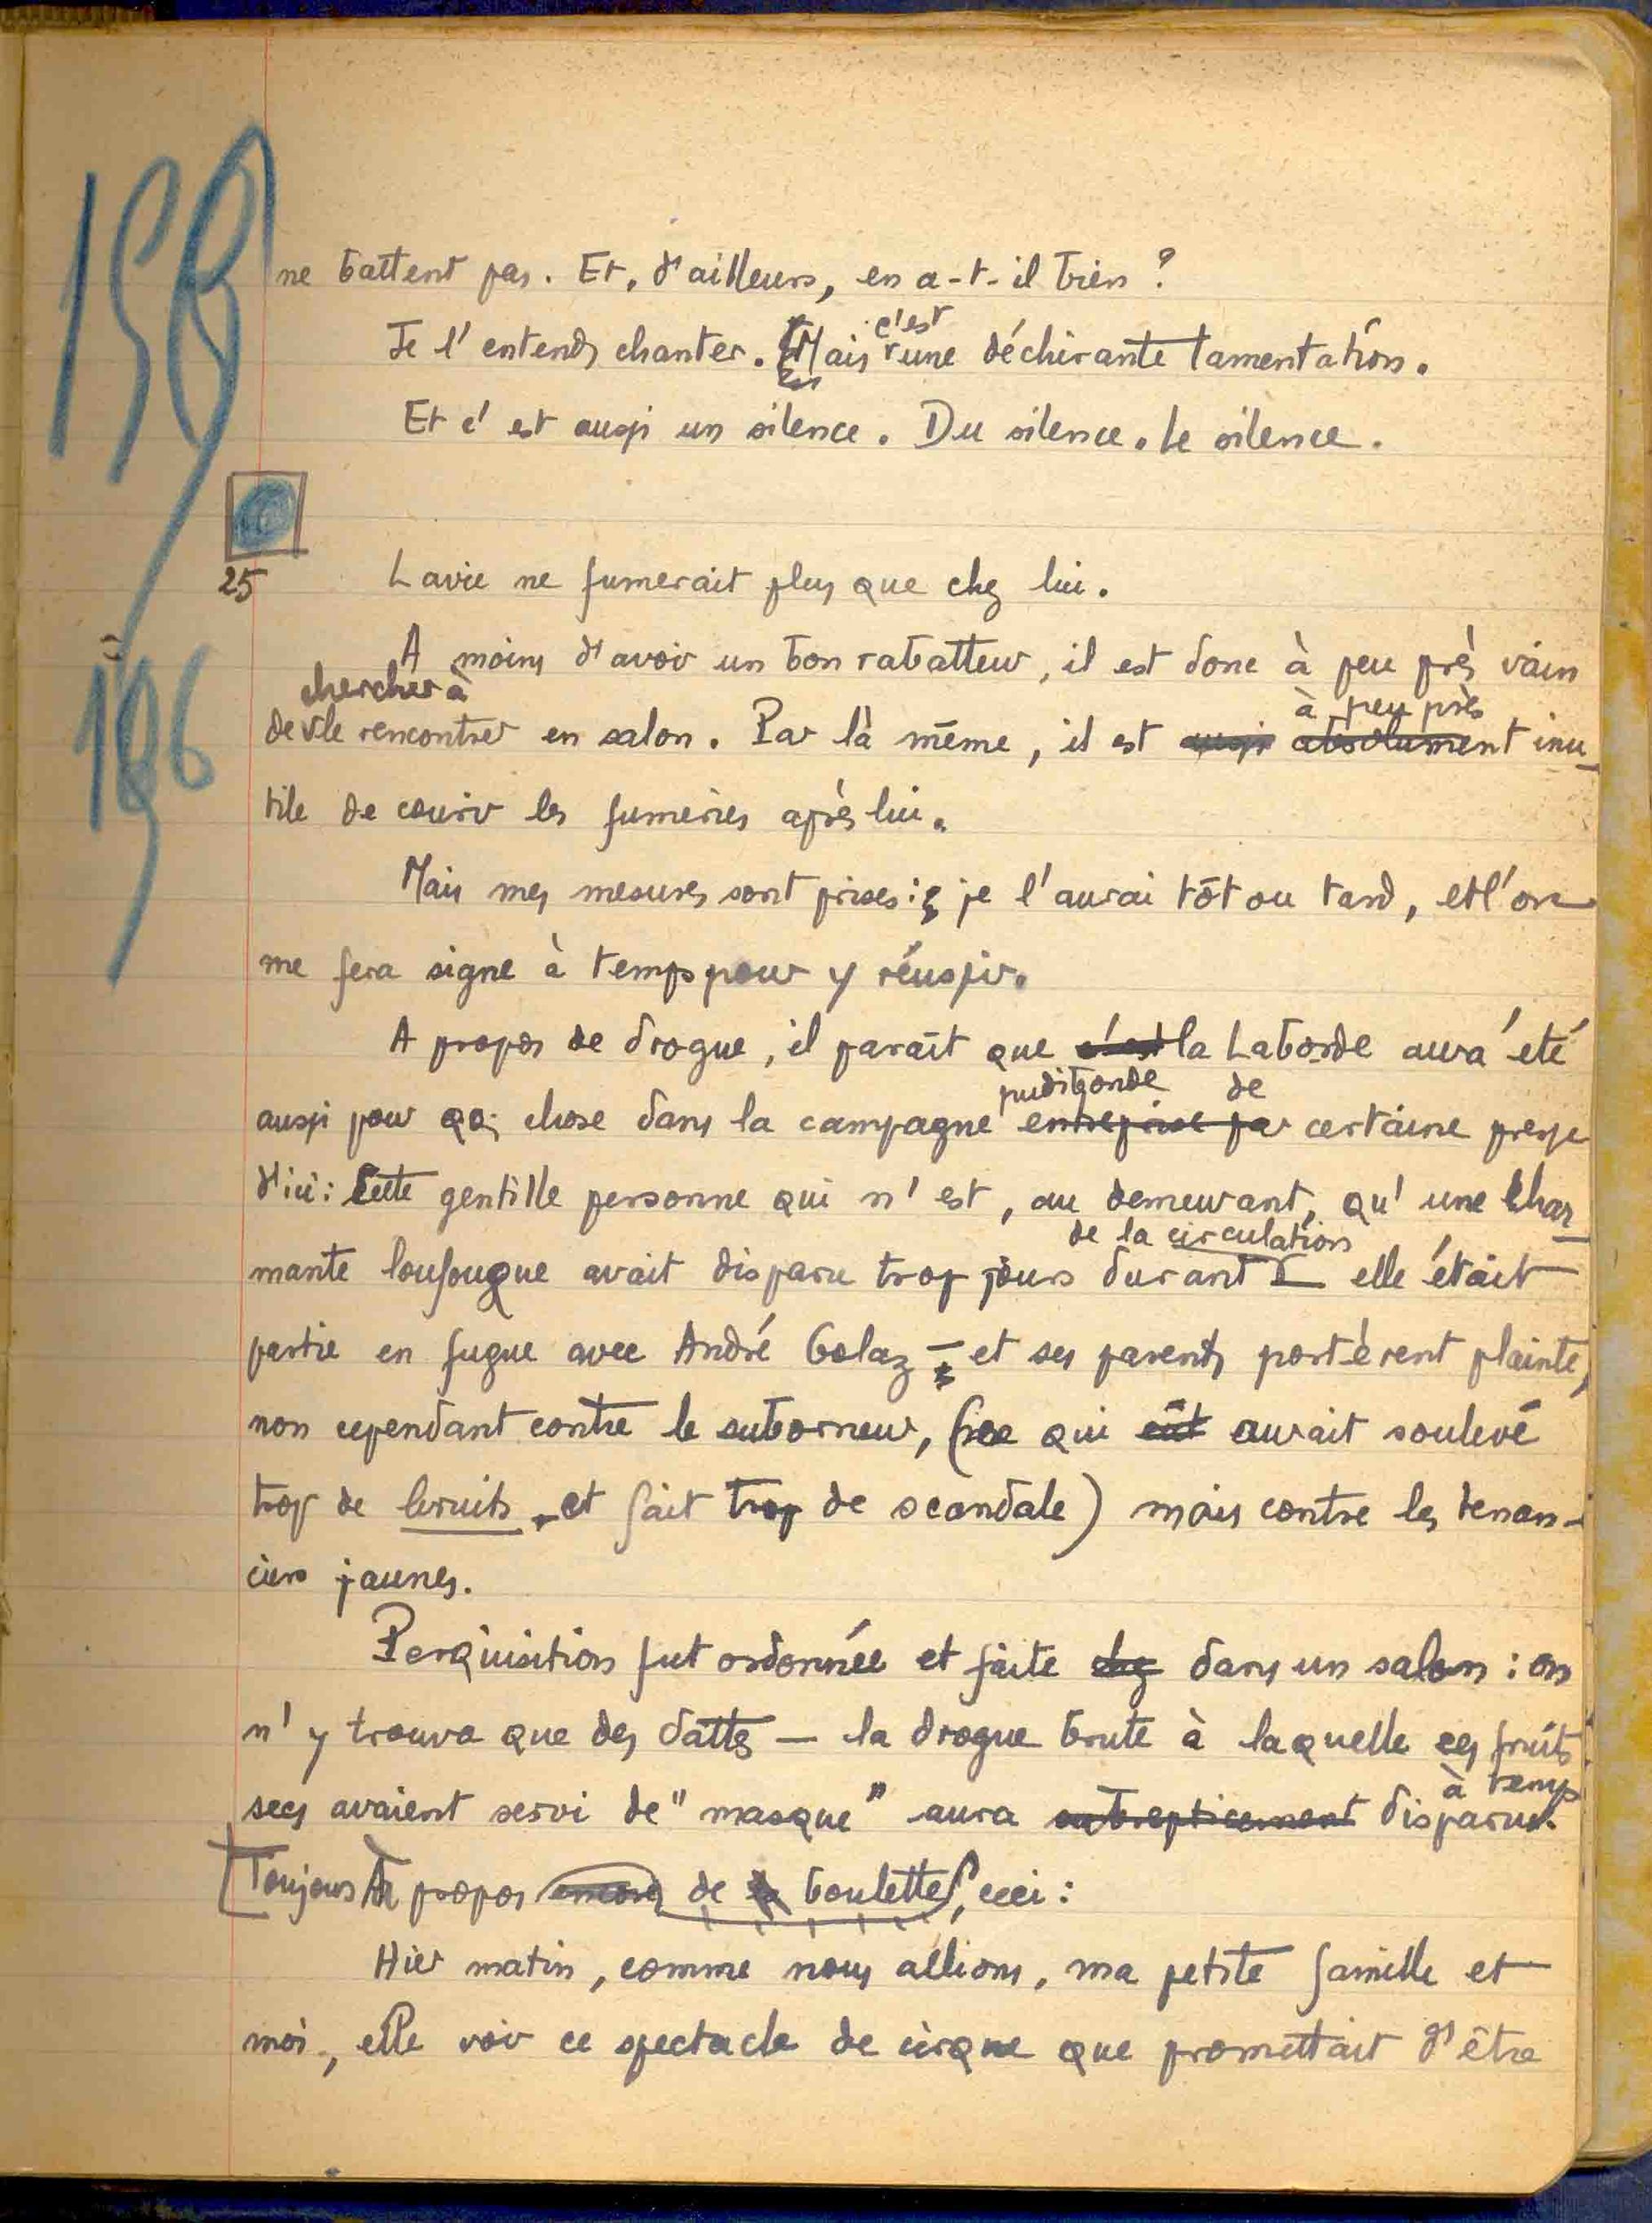 158
ne battent pas. Et, d'ailleurs, en a-t-il bien ?
c'est
Je l'entends chanter. Mais une déchirante lamentation.
Et c'est aussi un silence. Du silence. Le silence.
25
Lavie ne fumerait plus que chez lui.
à
196
A moins d'avoir un bon rabatteur, il est donc à peu près vain
chercher à
à peu près
de le rencontrer en salon. Par là même, il est aussi absolument inu-
tile de courir les fumeries après lui.
Mais mes mesures sont prises : je l'aurai tôt ou tard, et l'on
me fera signe à temps pour y réussir.
A propos de drogue, il paraît que c'est la Laborde aura été
pudibonde de
aussi pour qq. chose dans la campagne entreprise par certaine presse
d'ici : Cette gentille personne qui n'est, au demeurant, qu'une char-
de la circulation
mante loufouque avait disparu trop jours durant — elle était
partie en fugue avec André Golaz — et ses parents portèrent plainte,
non cependant contre le suborneur, (ce qui eût aurait soulevé
trop de bruits et fait trop de scandale) mais contre les tenan-
ciers jaunes.
Perquisition fut ordonnée et faite chez dans un salon : on
n'y trouva que des dattes — la drogue brute à laquelle ces fruits
à temps
secs avaient servi de "masque" aura subrepticement disparue.
Toujours à propos encore de boulettes, ceci :
Hier matin, comme nous allions, ma petite famille et
moi, elle voir ce spectacle de cirque que promettait d'être